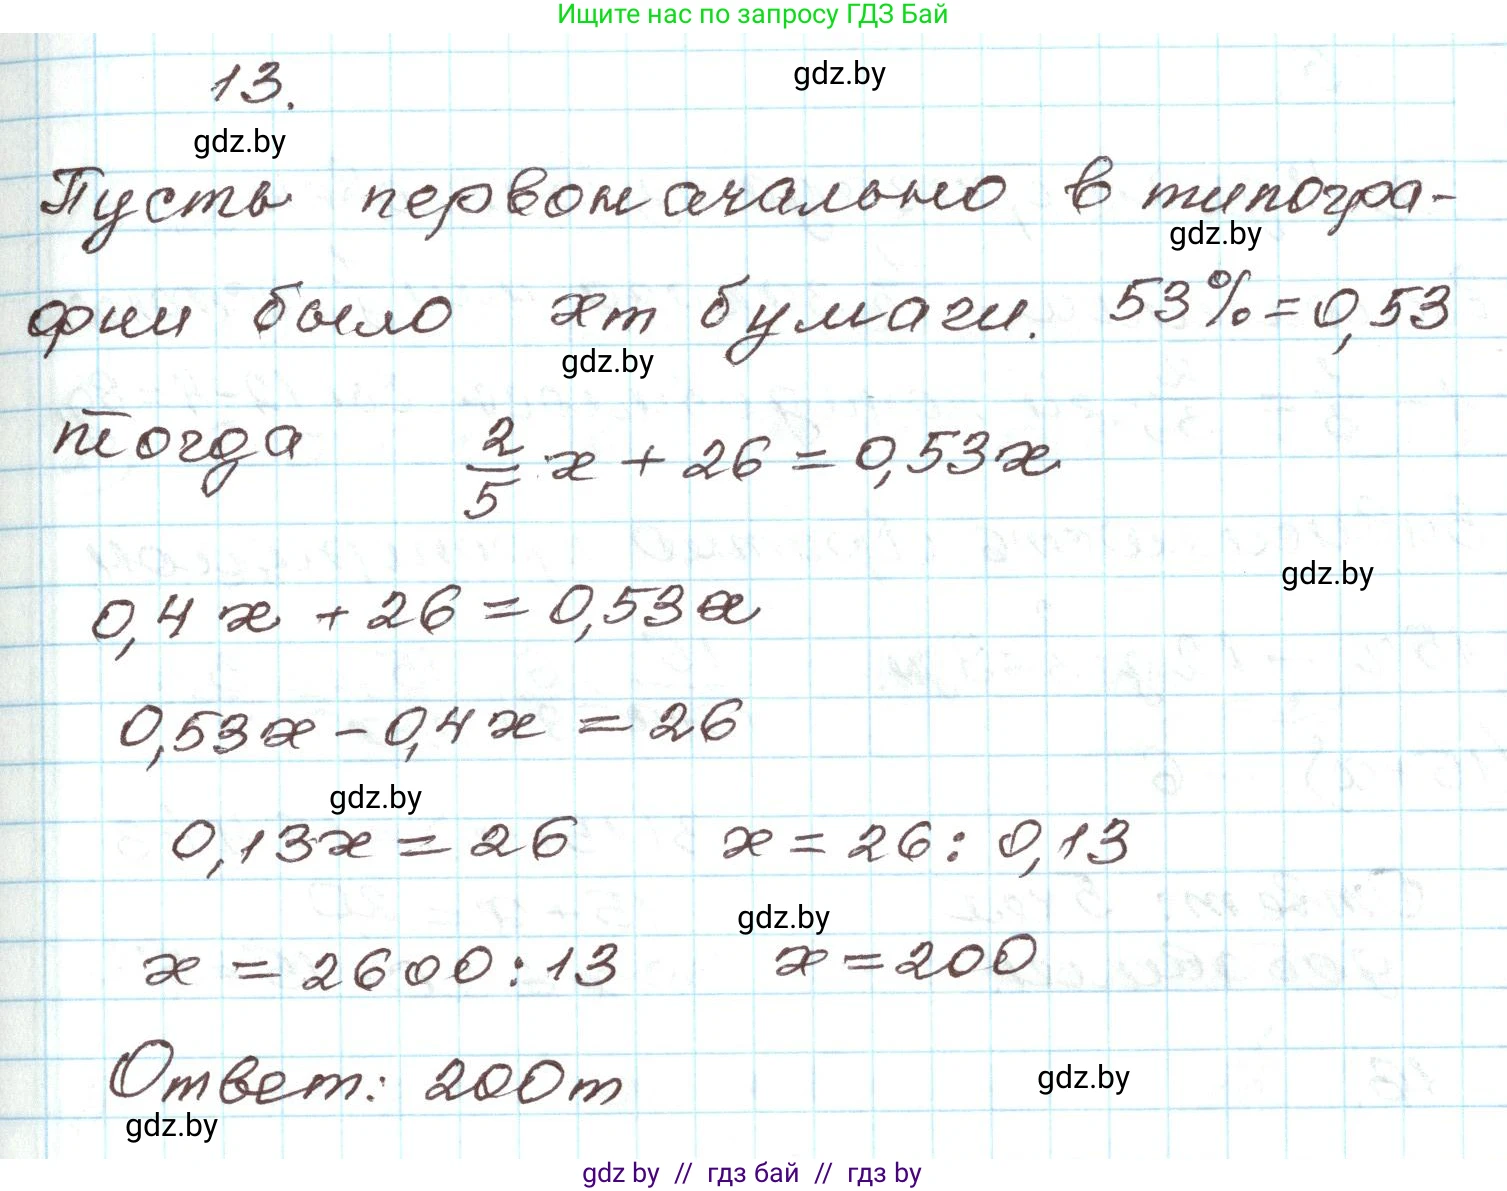 Ищите нас по запросу ГДЗ Бай
13.
gdz.by
gdz.by
Пусть первоначально в типогра-
gdz.by
фии было х т бумаги. 53% = 0,53
gdz.by
тогда 2/5 х + 26 = 0,53х
gdz.by
0,4х + 26 = 0,53х
0,53х - 0,4х = 26
gdz.by
0,13х = 26 х = 26 : 0,13
gdz.by
х = 2600 : 13 х = 200
Ответ: 200т
gdz.by
gdz.by
gdz by // гдз бай // гдз by